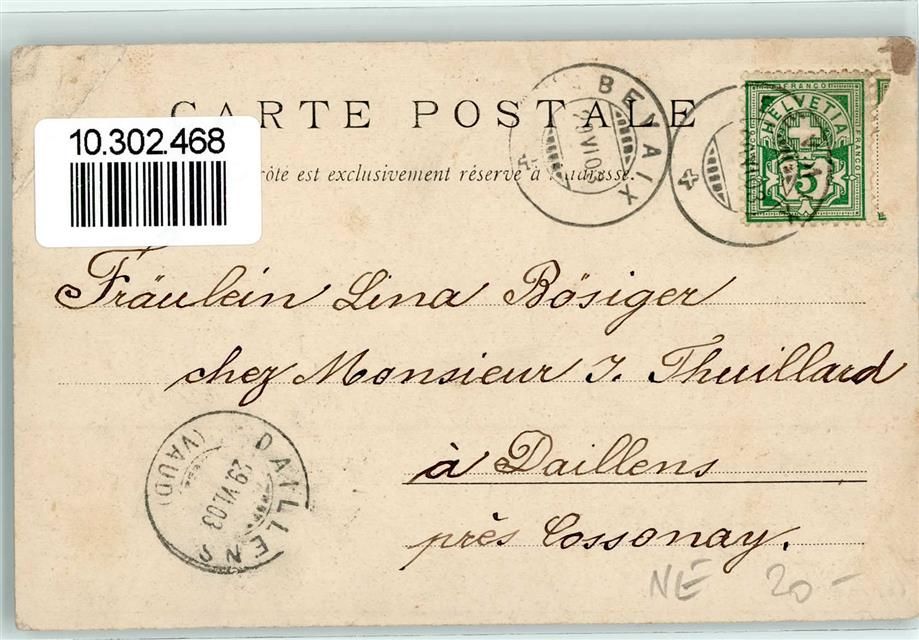 CARTE POSTALE
10.302.468
côté est exclusivement réservé à l'adresse.
BEVAIX
29 VI.03
FRANCO
HELVETIA
FRANCO
5
Fräulein Lina Bösiger
chez Monsieur J. Thuillard
à Daillens
près Cossonay.
DAILLENS
(VAUD)
29 VI.03
NE 20-